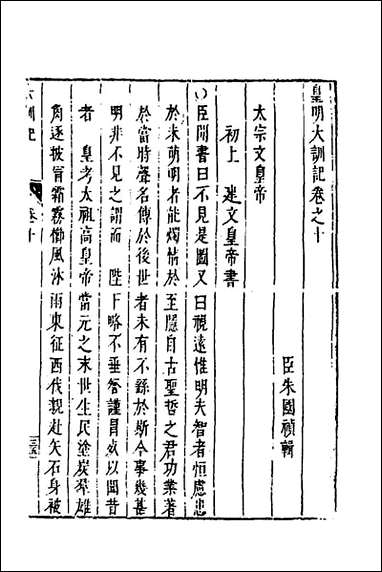 皇明大訓記卷之十
臣朱國禎輯
太宗文皇帝
初上建文皇帝書
臣聞書曰不見是圖又曰視遠惟明夫智者恒慮患
於未萌明者能燭情於至隱自古聖哲之君功業著
於當時聲名傳於後世者未有不繇於斯今事幾甚
明非不見之謂而 陛下略不垂詧謹冒死以聞昔
者 皇考太祖高皇帝當元之末世生民塗炭羣雄
角逐披冒霜露櫛風沐雨東征西伐親赴矢石身被
大訓記 卷十